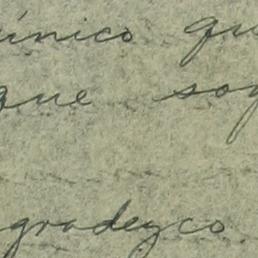 único qu
que soy
gradezco